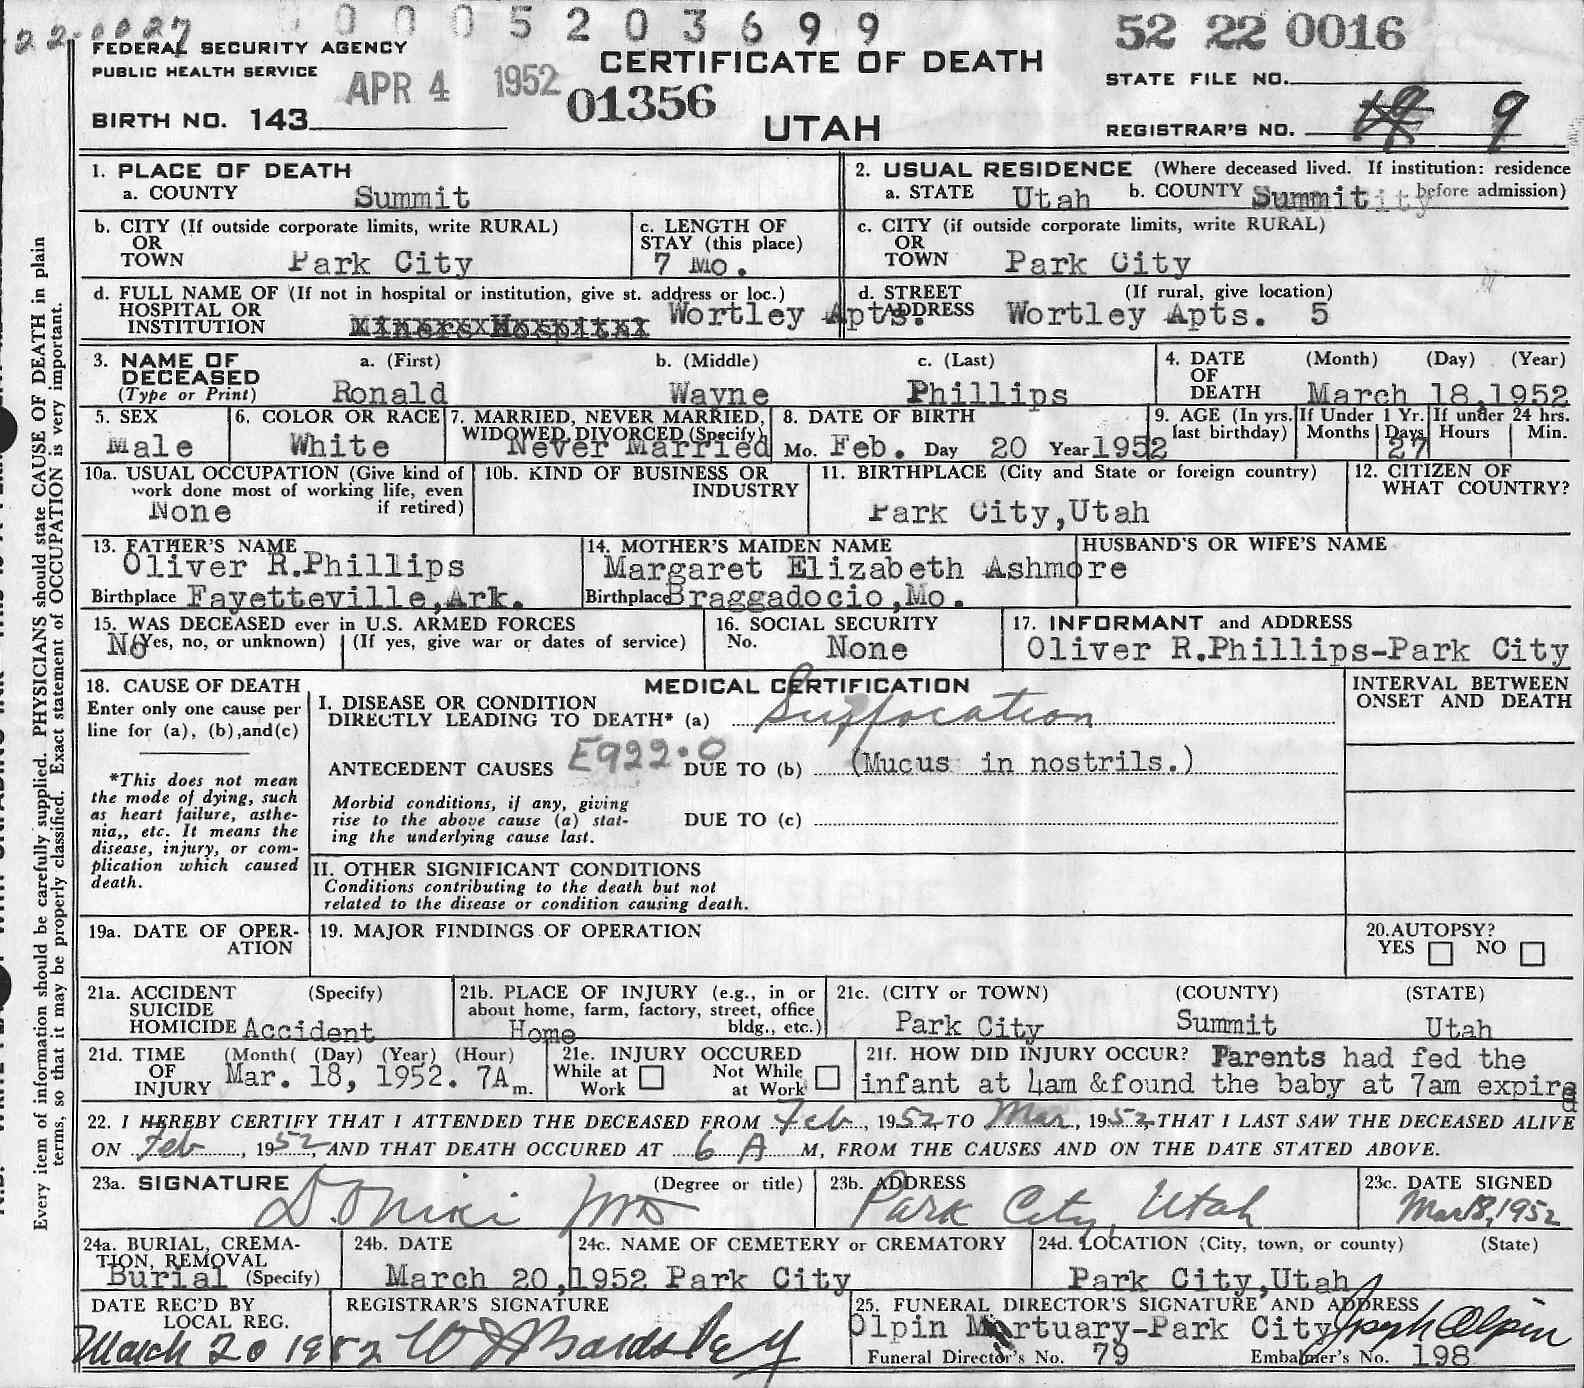 22.0027 0 0 0 5 2 0 3 6 9 9 52 22 0016
FEDERAL SECURITY AGENCY
PUBLIC HEALTH SERVICE
APR 4 1952
CERTIFICATE OF DEATH
STATE FILE NO.
BIRTH NO. 143
01356
UTAH
REGISTRAR'S NO. 9
1. PLACE OF DEATH
a. COUNTY Summit
2. USUAL RESIDENCE (Where deceased lived. If institution: residence
a. STATE Utah b. COUNTY Summit before admission)
b. CITY (If outside corporate limits, write RURAL)
OR
TOWN Park City
c. LENGTH OF
STAY (this place)
7 Mo.
c. CITY (if outside corporate limits, write RURAL)
OR
TOWN Park City
d. FULL NAME OF (If not in hospital or institution, give st. address or loc.)
HOSPITAL OR
INSTITUTION Miners Hospital Wortley Apts.
d. STREET (If rural, give location)
ADDRESS Wortley Apts. 5
3. NAME OF
DECEASED
(Type or Print)
a. (First) b. (Middle) c. (Last)
Ronald Wayne Phillips
4. DATE (Month) (Day) (Year)
OF
DEATH March 18,1952
5. SEX
Male
6. COLOR OR RACE
White
7. MARRIED, NEVER MARRIED,
WIDOWED, DIVORCED (Specify)
Never Married
8. DATE OF BIRTH
Mo. Feb. Day 20 Year 1952
9. AGE (In yrs.
last birthday)
If Under 1 Yr.
Months Days
27
If under 24 hrs.
Hours Min.
10a. USUAL OCCUPATION (Give kind of
work done most of working life, even
if retired)
None
10b. KIND OF BUSINESS OR
INDUSTRY
11. BIRTHPLACE (City and State or foreign country)
Park City,Utah
12. CITIZEN OF
WHAT COUNTRY?
13. FATHER'S NAME
Oliver R.Phillips
Birthplace Fayetteville,Ark.
14. MOTHER'S MAIDEN NAME
Margaret Elizabeth Ashmore
Birthplace Braggadocio,Mo.
HUSBAND'S OR WIFE'S NAME
15. WAS DECEASED ever in U.S. ARMED FORCES
No (Yes, no, or unknown) (If yes, give war or dates of service)
16. SOCIAL SECURITY
No. None
17. INFORMANT and ADDRESS
Oliver R.Phillips-Park City
18. CAUSE OF DEATH
Enter only one cause per
line for (a), (b),and(c)
*This does not mean
the mode of dying, such
as heart failure, asthe-
nia,, etc. It means the
disease, injury, or com-
plication which caused
death.
MEDICAL CERTIFICATION
I. DISEASE OR CONDITION
DIRECTLY LEADING TO DEATH* (a) Suffocation
ANTECEDENT CAUSES E922.0 DUE TO (b) (Mucus in nostrils.)
Morbid conditions, if any, giving
rise to the above cause (a) stat-
ing the underlying cause last.
DUE TO (c)
II. OTHER SIGNIFICANT CONDITIONS
Conditions contributing to the death but not
related to the disease or condition causing death.
INTERVAL BETWEEN
ONSET AND DEATH
19a. DATE OF OPER-
ATION
19. MAJOR FINDINGS OF OPERATION
20.AUTOPSY?
YES NO
21a. ACCIDENT (Specify)
SUICIDE
HOMICIDE Accident
21b. PLACE OF INJURY (e.g., in or
about home, farm, factory, street, office
bldg., etc.)
Home
21c. (CITY or TOWN) (COUNTY) (STATE)
Park City Summit Utah
21d. TIME (Month( (Day) (Year) (Hour)
OF
INJURY Mar. 18, 1952. 7A m.
21e. INJURY OCCURED
While at
Work
Not While
at Work
21f. HOW DID INJURY OCCUR? Parents had fed the
infant at 4am &found the baby at 7am expired
22. I HEREBY CERTIFY THAT I ATTENDED THE DECEASED FROM Feb, 1952 TO Mar, 1952 THAT I LAST SAW THE DECEASED ALIVE
ON Feb, 1952, AND THAT DEATH OCCURED AT 6 A M, FROM THE CAUSES AND ON THE DATE STATED ABOVE.
23a. SIGNATURE (Degree or title)
23b. ADDRESS
Park City, Utah
23c. DATE SIGNED
Mar 18, 1952
24a. BURIAL, CREMA-
TION, REMOVAL
Burial (Specify)
24b. DATE
March 20,1952
24c. NAME OF CEMETERY or CREMATORY
Park City
24d. LOCATION (City, town, or county) (State)
Park City,Utah
DATE REC'D BY
LOCAL REG.
March 20 1952
REGISTRAR'S SIGNATURE
W J Bardsley
25. FUNERAL DIRECTOR'S SIGNATURE AND ADDRESS
Olpin Mortuary-Park City Joseph Olpin
Funeral Director's No. 79 Embalmer's No. 198
Every item of information should be carefully supplied. PHYSICIANS should state CAUSE OF DEATH in plain
terms, so that it may be properly classified. Exact statement of OCCUPATION is very important.